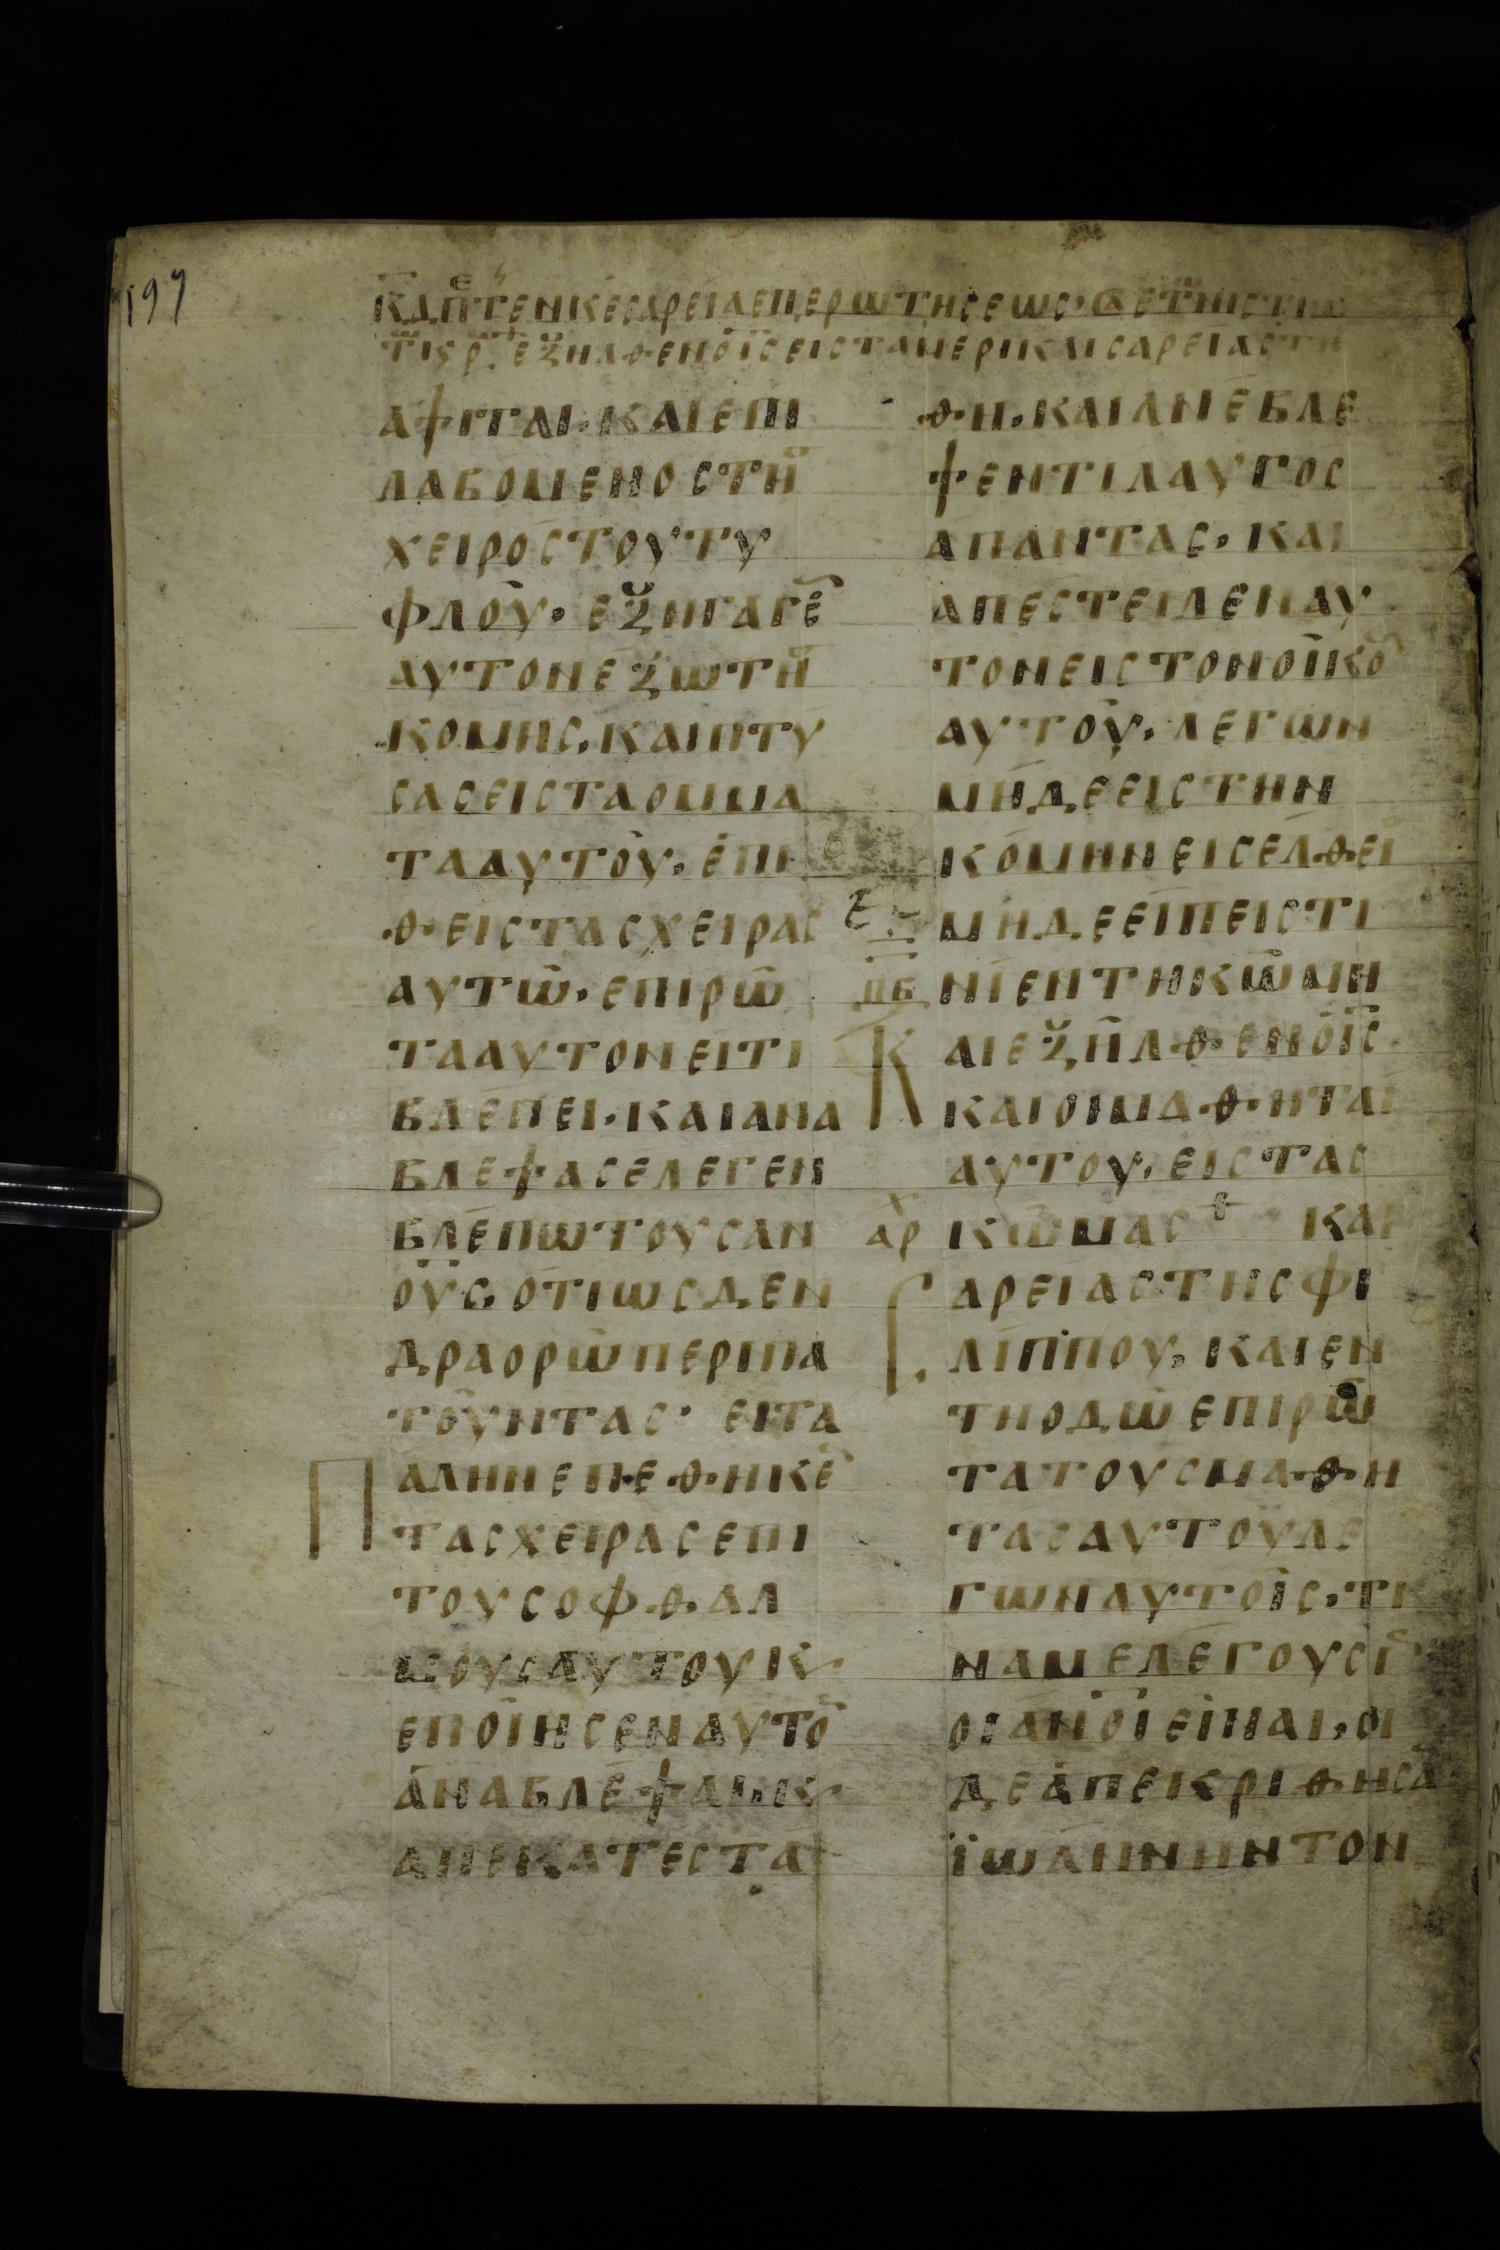 197
ΑΨΗΤΑΙ· ΚΑΙ ΕΠΙ
ΛΑΒΟΜΕΝΟΣ ΤΗ
ΧΕΙΡΟΣ ΤΟΥ ΤΥ
ΦΛΟΥ· ΕΞΗΓΑΓΕ
ΑΥΤΟΝ ΕΞΩ ΤΗ
ΚΟΜΗΣ· ΚΑΙ ΠΤΥ
ΣΑΣ ΕΙΣ ΤΑ ΟΜΜΑ
ΤΑ ΑΥΤΟΥ· ΕΠΗ
ΘΕΙΣ ΤΑΣ ΧΕΙΡΑΣ
ΑΥΤΩ· ΕΠΙΡΩ
ΤΑ ΑΥΤΟΝ ΕΙ ΤΙ
ΒΛΕΠΕΙ· ΚΑΙ ΑΝΑ
ΒΛΕΨΑΣ ΕΛΕΓΕΝ
ΒΛΕΠΩ ΤΟΥΣ ΑΝ
ΟΥΣ· ΟΤΙ ΩΣ ΔΕΝ
ΔΡΑ ΟΡΩ ΠΕΡΙΠΑ
ΤΟΥΝΤΑΣ· ΕΙΤΑ
ΠΑΛΗΝ ΕΠΕΘΗΚΕ
ΤΑΣ ΧΕΙΡΑΣ ΕΠΙ
ΤΟΥΣ ΟΦΘΑΛ
ΜΟΥΣ ΑΥΤΟΥ Κ
ΕΠΟΙΗΣΕΝ ΑΥΤΟ
ΑΝΑΒΛΕΨΑΙ· Κ
ΑΠΕΚΑΤΕΣΤΑ
ΘΗ· ΚΑΙ ΑΝΕΒΛΕ
ΨΕΝ ΤΙΛΑΥΓΟΣ
ΑΠΑΝΤΑΣ· ΚΑΙ
ΑΠΕΣΤΕΙΛΕΝ ΑΥ
ΤΟΝ ΕΙΣ ΤΟΝ ΟΙΚΟ
ΑΥΤΟΥ· ΛΕΓΩΝ
ΜΗΔΕ ΕΙΣ ΤΗΝ
ΚΟΜΗΝ ΕΙΣΕΛΘΕΙ
ΜΗΔΕ ΕΙΠΕΙΣ ΤΙ
ΝΙ ΕΝ ΤΗ ΚΩΜΗ
ΠΒ
ΚΑΙ ΕΞΗΛΘΕΝ Ο ΙΣ
ΚΑΙ ΟΙ ΜΑΘΗΤΑΙ
ΑΥΤΟΥ· ΕΙΣ ΤΑΣ
ΑΡΧ ΚΩΜΑΣ ΚΑΙ
ΣΑΡΕΙΑΣ ΤΗΣ ΦΙ
ΛΙΠΠΟΥ· ΚΑΙ ΕΝ
ΤΗ ΟΔΩ ΕΠΙΡΩ
ΤΑ ΤΟΥΣ ΜΑΘΗ
ΤΑΣ ΑΥΤΟΥ ΛΕ
ΓΩΝ ΑΥΤΟΙΣ· ΤΙ
ΝΑ ΜΕ ΛΕΓΟΥΣΙ
ΟΙ ΑΝΟΙ ΕΙΝΑΙ· ΟΙ
ΔΕ ΑΠΕΚΡΙΘΗΣΑ
ΪΩΑΝΝΗΝ ΤΟΝ